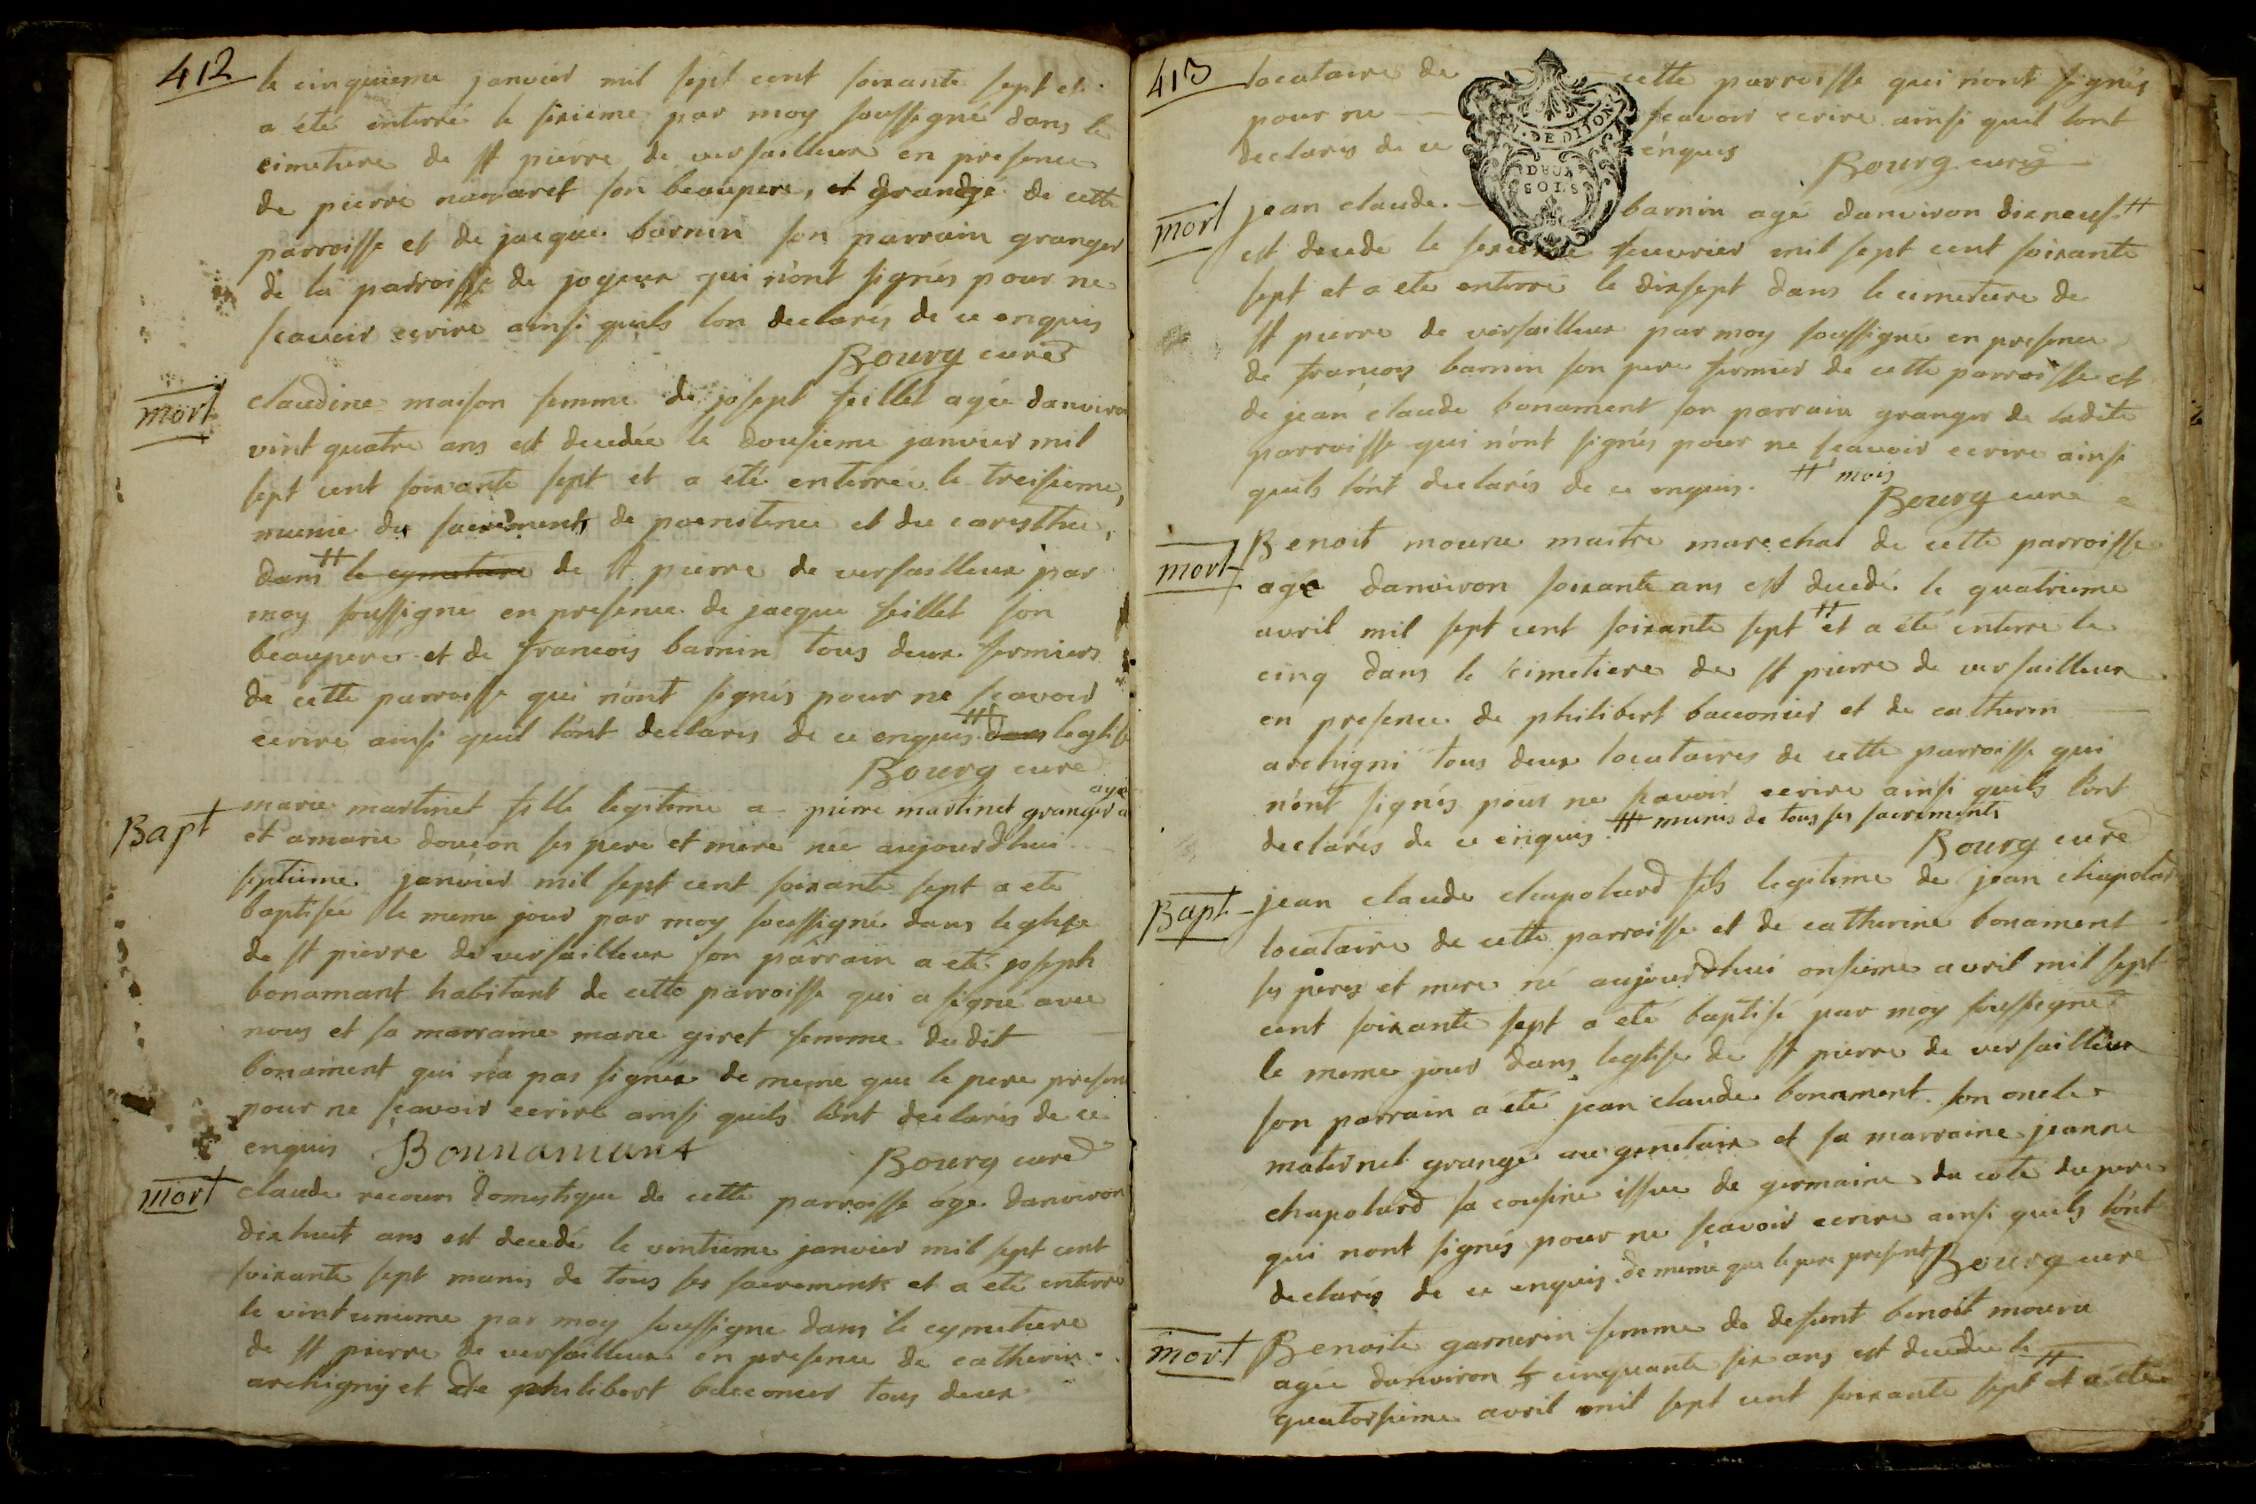 412
le cinquieme janvier mil sept cent soixante sept et
a été enterré le sixieme par moy soussigné dans le
cimetiere de st pierre de versailleux en presence
de pierre son beaupere, et grangé de cette
parroisse et de jacque barnin son parrain granger
de la parroisse de joyeux qui n'ont signés pour ne
scavoir ecrire ainsi quils lon declares de ce enquis
Bourg curé
mort
claudine maison femme de josept feillet agée danviron
vint quatre ans est decedée le dousieme janvier mil
sept cent soixante sept et a été enterrée le treisieme,
munie des sacrements de poenitence et du carysthie,
dans # le cymetiere de st pierre de versailleux par
moy soussigne en presence de jacque feillet son
beaupere et de francois barnin tous deux fermiers
de cette parroisse qui n'ont signés pour ne scavoir
ecrire ainsi quil lónt declares de ce enquis. # dans leglise
Bourg curé
Bapt
marie martinet fille legitime a pierre martinet granger a
et a marie doucon ses pere et mere née aujourdhui
septieme janvier mil sept cent soixante sept a ete
baptisée le meme jour par moy soussigné dans leglise
de st pierre de versailleux son parrain a eté joseph
bonamant habitant de cette parroisse qui a signe avec
nous et sa marraine marie giret femme dudit
bonament qui n'a pas signée de meme que le pere presen
pour ne scavoir ecrire ainsi quils lónt declarés de ce
enquis Bonnamant Bourg curé
mort
claude recoun domestique de cette parroisse age danviron
dixhuit ans est decedé le vintieme janvier mil sept cent
soixante sept munis de tous ses sacrements et a eté enterré
le vint unieme par moy soussigne dans le cymetiere
de st pierre de versailleux en presence de catherin
archigny et de philibert bacconier tous deux
413
locataire de cette parroisse qui n'ont signés
pour ne scavoir ecrire ainsi quil lont
declarés de ce enquis Bourg curé
DE DIJON
mort
jean claude barnin agé danviron dixneuf #
est decedé le sexieme feuvrier mil sept cent soixante
sept et a ete enterré le dixsept dans le cimetiere de
st pierre de versailleux par moy soussigne en presence
de francois barnin son pere fermier de cette parroisse et
de jean claude bonament son parrain granger de ladite
parroisse qui n'ont signés pour ne scavoir ecrire ainsi
quils lónt declarés de ce enquis. # mois
Bourg curé
mort
Benoit mouru maitre marechal de cette parroisse
agé danviron soixante ans est decedé le quatrieme
avril mil sept cent soixante sept # et a été enterré le
cinq dans le cimetiere de st pierre de versailleux
en presence de philibert bacconier et de catherin
archigni tous deux locataires de cette parroisse qui
n'ont signés pour ne scavoir ecrire ainsi quils lónt
declarés de ce enquis. # munis de tous ses sacrements
Bourg curé
Bapt
jean claude chapolard fils legitime de jean chapolard
locataire de cette parroisse et de catherine bonament
ses peres et mere né aujourdhui onsieme avril mil sept
cent soixante sept a eté baptisé par moy soussigné
le meme jour dans leglise de st pierre de versailleux
son parrain a été jean claude bonament son oncle
maternel grangé au et sa marraine jeanne
chapolard sa cousine issue de germaine du coté du pere
qui nont signés pour ne scavoir ecrire ainsi quils lónt
declarés de ce enquis. de méme que le pere present Bourg curé
mort
Benoite garnerin femme de defunt benoit mouru
agée danviron cinquante six ans est decedée le
quatorsieme avril mil sept cent soixante sept # et a été